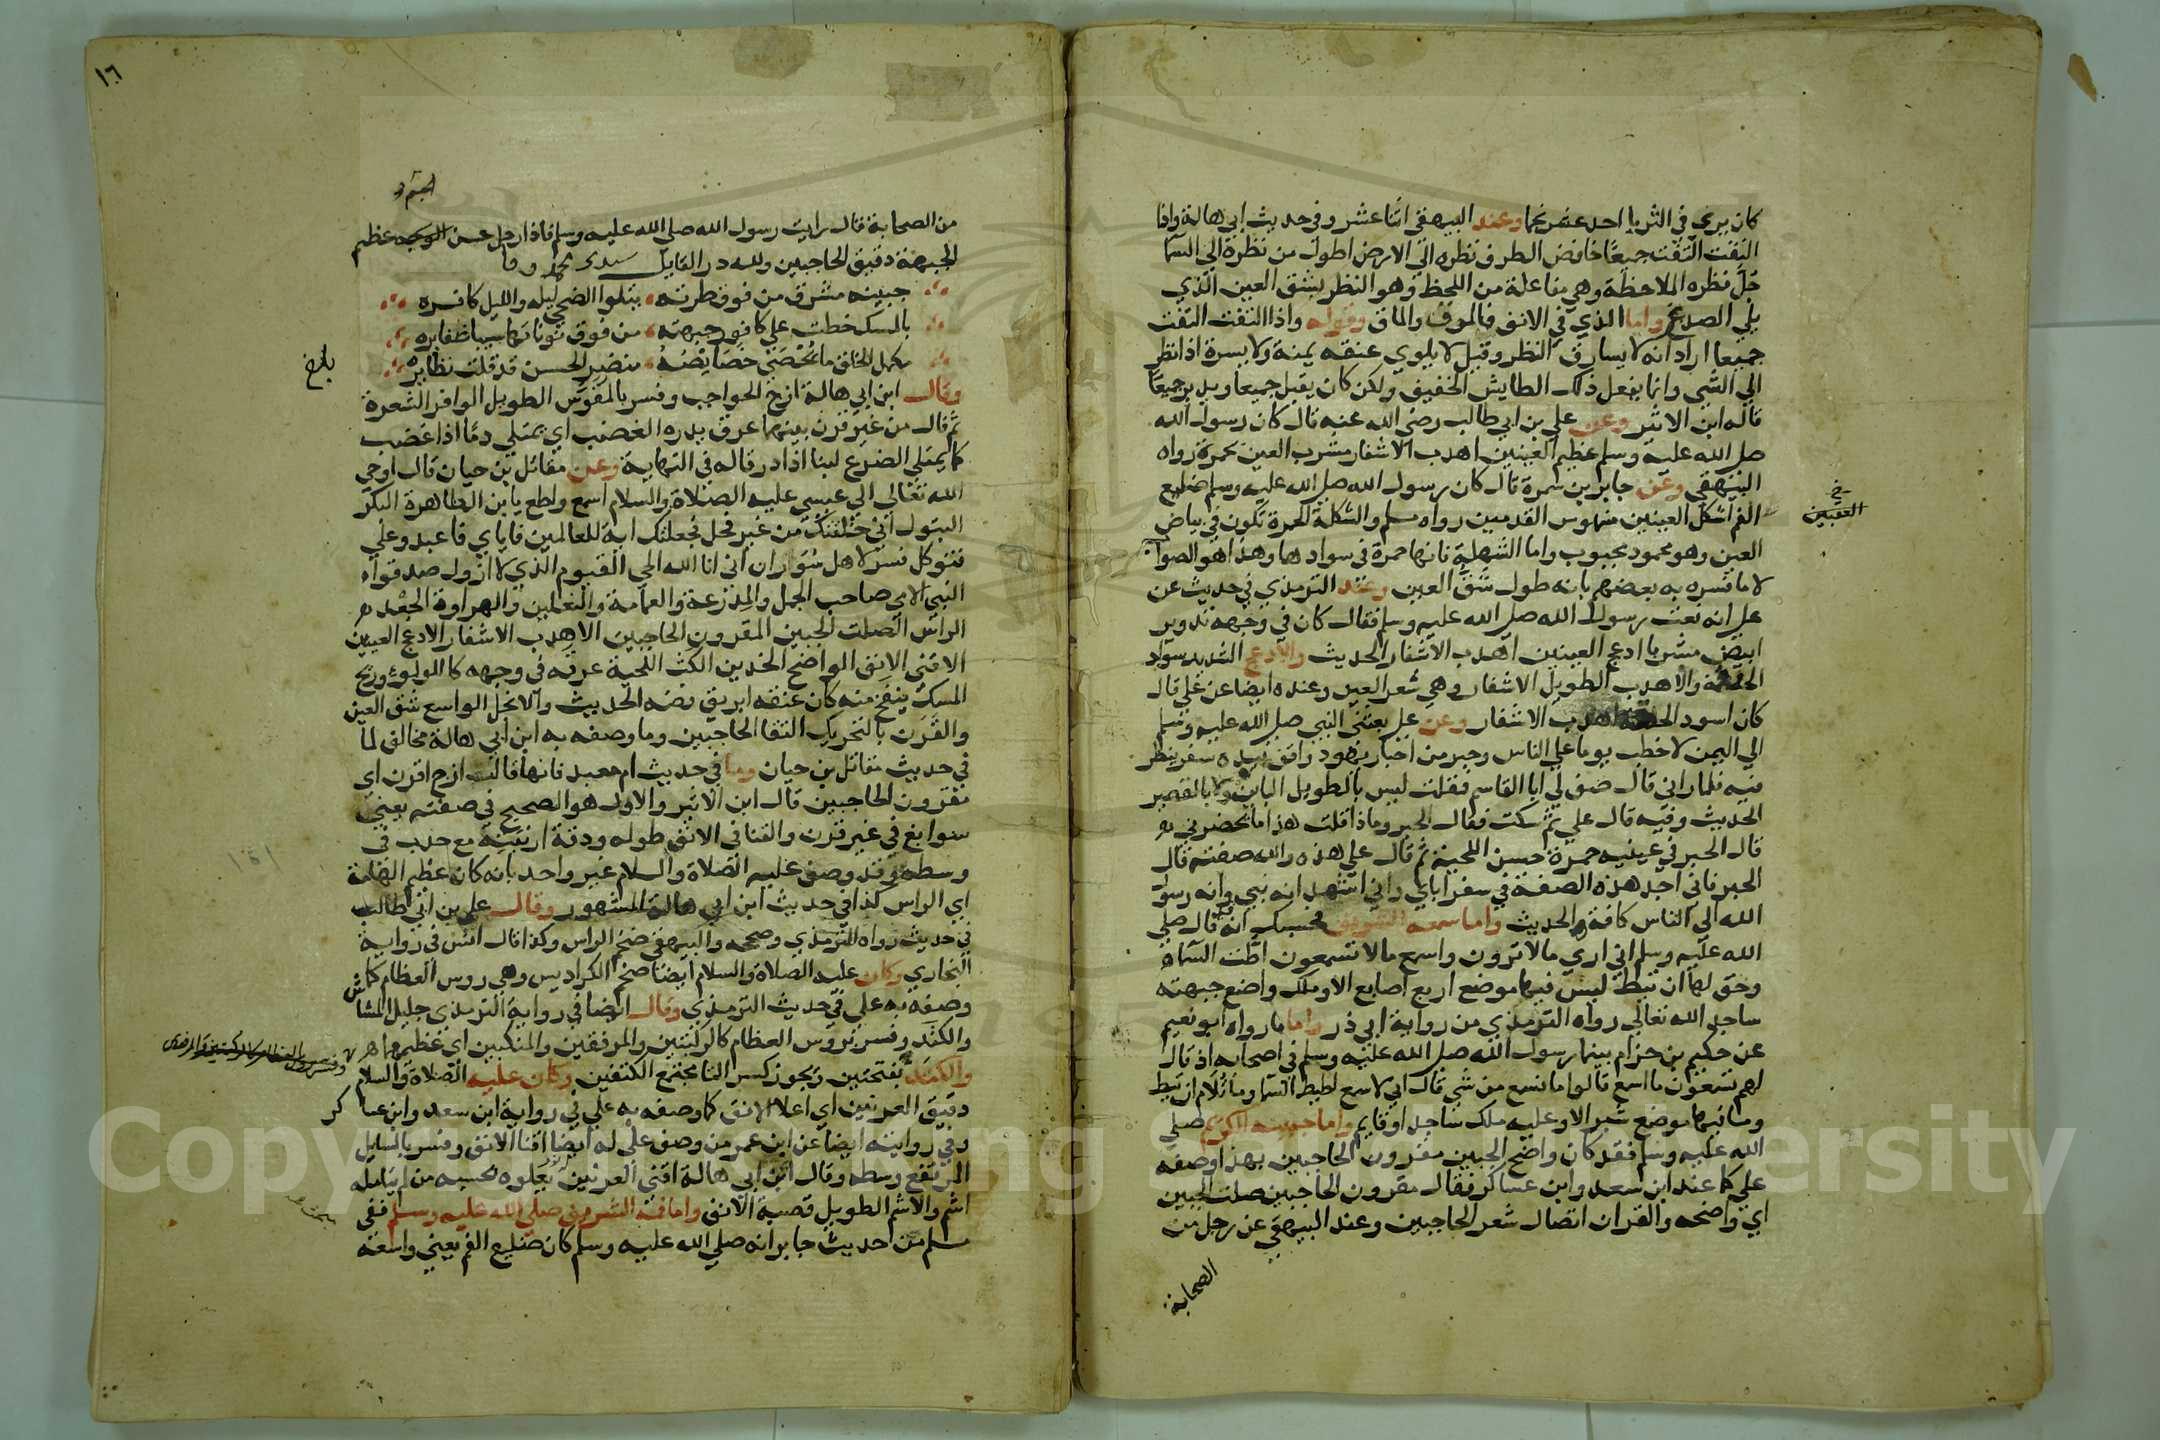 كان يري في الثريا احد عشر نجما وعند البيهقي اثنا عشر وفي حديث ابي هالة واذا
التفت التفت جميعًا خافض الطرف نظره الي الارض اطول من نظره الي السما
جلّ نظره الملاحظة وهي مفاعلة من اللحظ وهو النظر بشق العين الذي
يلي الصدغ واما الذي في الانف فالموق والماق وقوله واذا التفت التفت
جميعا اراد انه لا يسارق النظر وقيل لا يلوي عنقه يمنة ولا يسرة اذا نظر
الي الشي وانما يفعل ذلك الطايش الخفيف ولكن كان يقبل جميعا ويدبر جميعًا
قاله ابن الاثير وعن علي بن ابي طالب رضي الله عنه قال كان رسول الله
صلى الله عليه وسلم عظيم العينين اهدب الاشفار مشرب العين بحمرة رواه
البيهقي وعن جابر بن سمرة قال كان رسول الله صلى الله عليه وسلم ضليع
الفم اشكل العينين منهوس القدمين رواه مسلم والشكلة الحمرة تكون في بياض
خ
العقبين
العين وهو محمود محبوب واما الشهلة فانها حمرة في سوادها وهذا هو الصواب
لا ما فسره به بعضهم بانه طول شق العين وعند الترمذي في حديث عن
علي انه نعت رسول الله صلى الله عليه وسلم فقال كان في وجهه تدوير
ابيض مشربا ادعج العينين اهدب الاشفار الحديث والادعج الشديد سواد
الحدقة والاهدب الطويل الاشفار وهي شعر العين وعنده ايضا عن علي قال
كان اسود الحدقة اهدب الاشفار وعن علي بعثني النبي صلى الله عليه وسلم
الي اليمن لاخطب يوما علي الناس وحبر من احبار يهود واقف بيده سفر ينظر
فيه فلما راني قال صف لي ابا القاسم فقلت ليس بالطويل الباين ولا بالقصير
الحديث وفيه قال علي ثم سكت فقال الحبر وماذا قلت هذا ما يحضرني
قال الحبر في عينيه حمرة حسن اللحية ثم قال علي هذه والله صفته قال
الحبر فاني اجد هذه الصفة في سفر اباي واني اشهد انه نبي وانه رسول
الله الي الناس كافة الحديث واما سمعه الشريف فحسبك انه قد قال صلي
الله عليه وسلم اني اري مالا ترون واسمع مالا تسمعون اطت السماء
وحق لها ان تئط ليس فيها موضع اربع اصابع الا وملك واضع جبهته
ساجد الله تعالي رواه الترمذي من رواية ابي ذر واما ما رواه ابو نعيم
عن حكيم بن حزام بينما رسول الله صلى الله عليه وسلم في اصحابه اذ قال
لهم تسمعون ما اسمع قالوا ما نسمع من شي قال اني لاسمع اطيط السما وما تلام ان تيط
وما فيها موضع شبر الا وعليه ملك ساجد او قايم واما جبينه الكريم صلي
الله عليه وسلم فقد كان واضح الجبين مقرون الحاجبين بهذا وصفه
علي كما عند ابن سعد وابن عساكر فقال مقرون الحاجبين صلت الجبين
اي واضحه والقران اتصال شعر الحاجبين وعند البيهقي عن رجل من
الصحابة
١٦
من الصحابة قال رايت رسول الله صلي الله عليه وسلم فاذا رجل حسن الوجه عظيم
الجبهة دقيق الحاجبين ولله در القايل سيدي محمد وفا
جبينه مشرق من فوق طرته يتلوا الضحي ليله والليل كافره
بالمسك خطت علي كافور جبهته من فوق نوناتها سينا ظفايره
مكمل الخلق ما تحصي خصايصه منضر الحسن قد قلت نظايره
بلغ
وقال ابن ابي هالة ازج الحواجب وفسر بالمقوّس الطويل الوافر الشعرة
ثم قال من غير قرن بينهما عرق يدره الغضب اي يمتلي دمًا اذا غضب
كما يمتلي الضرع لبنا اذا در قاله في النهاية وعن مقاتل بن حيان قال اوحي
الله تعالي الي عيسي عليه الصلاة والسلام اسمع واطع يا بن الطاهرة البكر
البتول اني خلقتك من غير فحل فجعلتك اية للعالمين فاياي فاعبد وعلي
فتوكل فسر لاهل سُوران اني انا الله الحي القيوم الذي لا ازول صدقوا
النبي الامي صاحب الجمل والمدرعة والعمامة والنعلين والهراوة الجعد
الراس الصلت الجبين المقرون الحاجبين الاهدب الاشفار الادعج العينين
الاقني الانف الواضح الخدين الكث اللحية عرقه في وجهه كاللولوء وريح
المسك ينفح منه كان عنقه ابريق فضه الحديث والانجل الواسع شق العين
والقَرَن بالتحريك التقا الحاجبين وما وصفه به ابن ابي هالة مخالف لما
في حديث مقاتل بن حيان وما في حديث ام معبد فانها قالت ازج اقرن اي
مقرون الحاجبين قال ابن الاثير والاول هو الصحيح في صفته يعني
سوابغ في غير قرن والقنا في الانف طوله ودقة ارنبته مع حدب في
وسطه وقد وصف عليه الصلاة والسلام غير واحد بانه كان عظيم الهامة
اي الراس كذا في حديث ابن ابي هالة المشهور وقال علي بن ابي طالب
في حديث رواه الترمذي وصححه والبيهقي ضخم الراس وكذا قال انس في رواية
البخاري وكان عليه الصلاة والسلام ايضا ضخم الكراديس وهي روس العظام كما
وصفه به علي في حديث الترمذي وقال ايضا في رواية الترمذي جليل المشاش
والكتد وفسر بروس العظام كالركبتين والمرفقين والمنكبين اي عظيمهما
والكتد بفتحتين ويجوز كسر التا مجتمع الكتفين وكان عليه الصلاة والسلام
دقيق العرنين اي اعلا الانف كما وصفه به علي في رواية ابن سعد وابن عساكر
وفي روايته ايضا عن ابن عمر من وصف علي له ايضا اقنا الانف وفسر بالسايل
المرتفع وسطه وقال ابن ابي هالة اقني العرنين له نور يعلوه يحسبه من لم يتامله
اشم والاشم الطويل قصبة الانف واما فمه الشريف صلي الله عليه وسلم ففي
مسلم من حديث جابر انه صلي الله عليه وسلم كان ضليع الفم يعني واسعه
Copyright © King Saud University